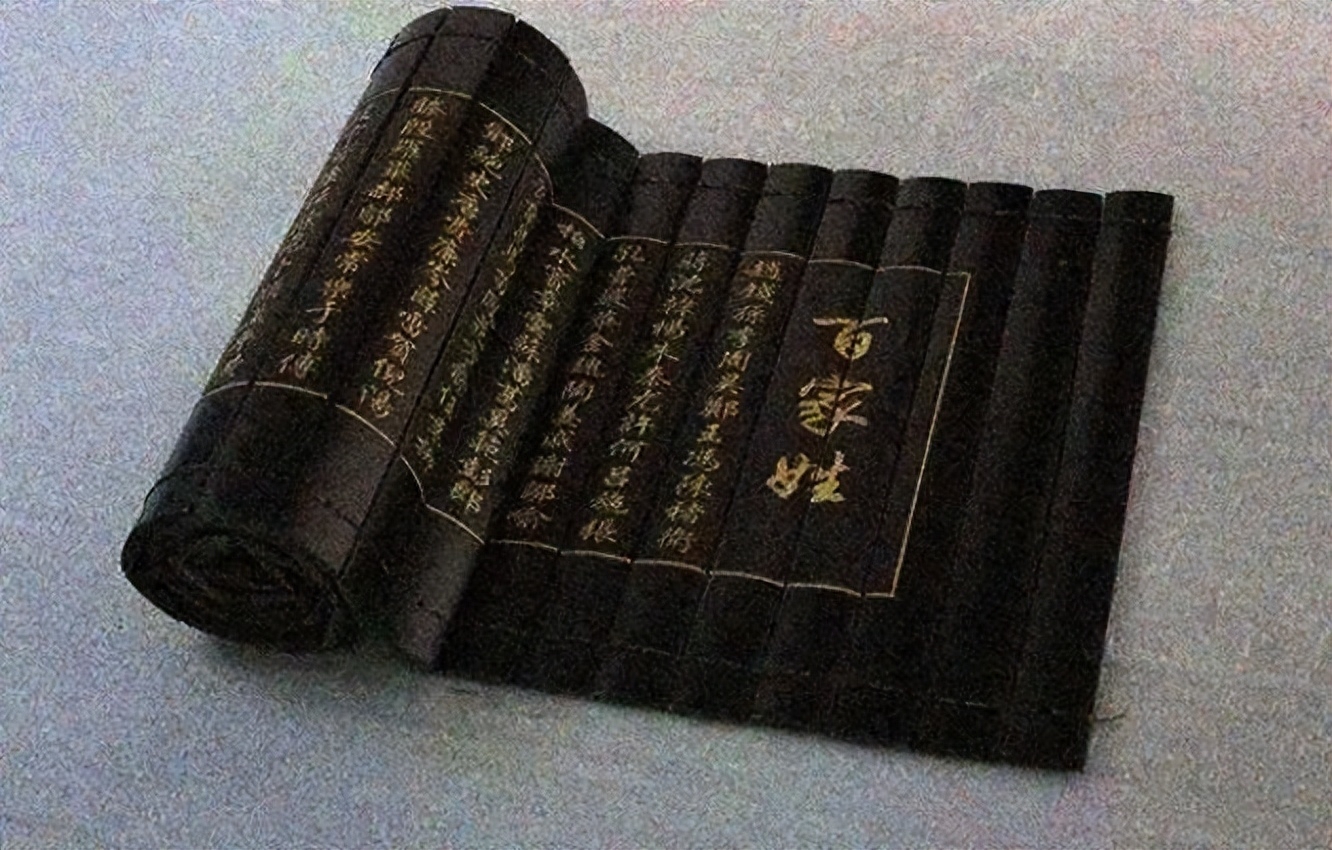 百家姓
趙錢孫李周吳鄭王馮陳褚衛
蔣沈韓楊朱秦尤許何呂施張
孔曹嚴華金魏陶姜戚謝鄒喻
柏水竇章雲蘇潘葛奚范彭郎
酆鮑史唐費廉岑薛雷賀倪湯
滕殷羅畢郝鄔安常樂于時傅